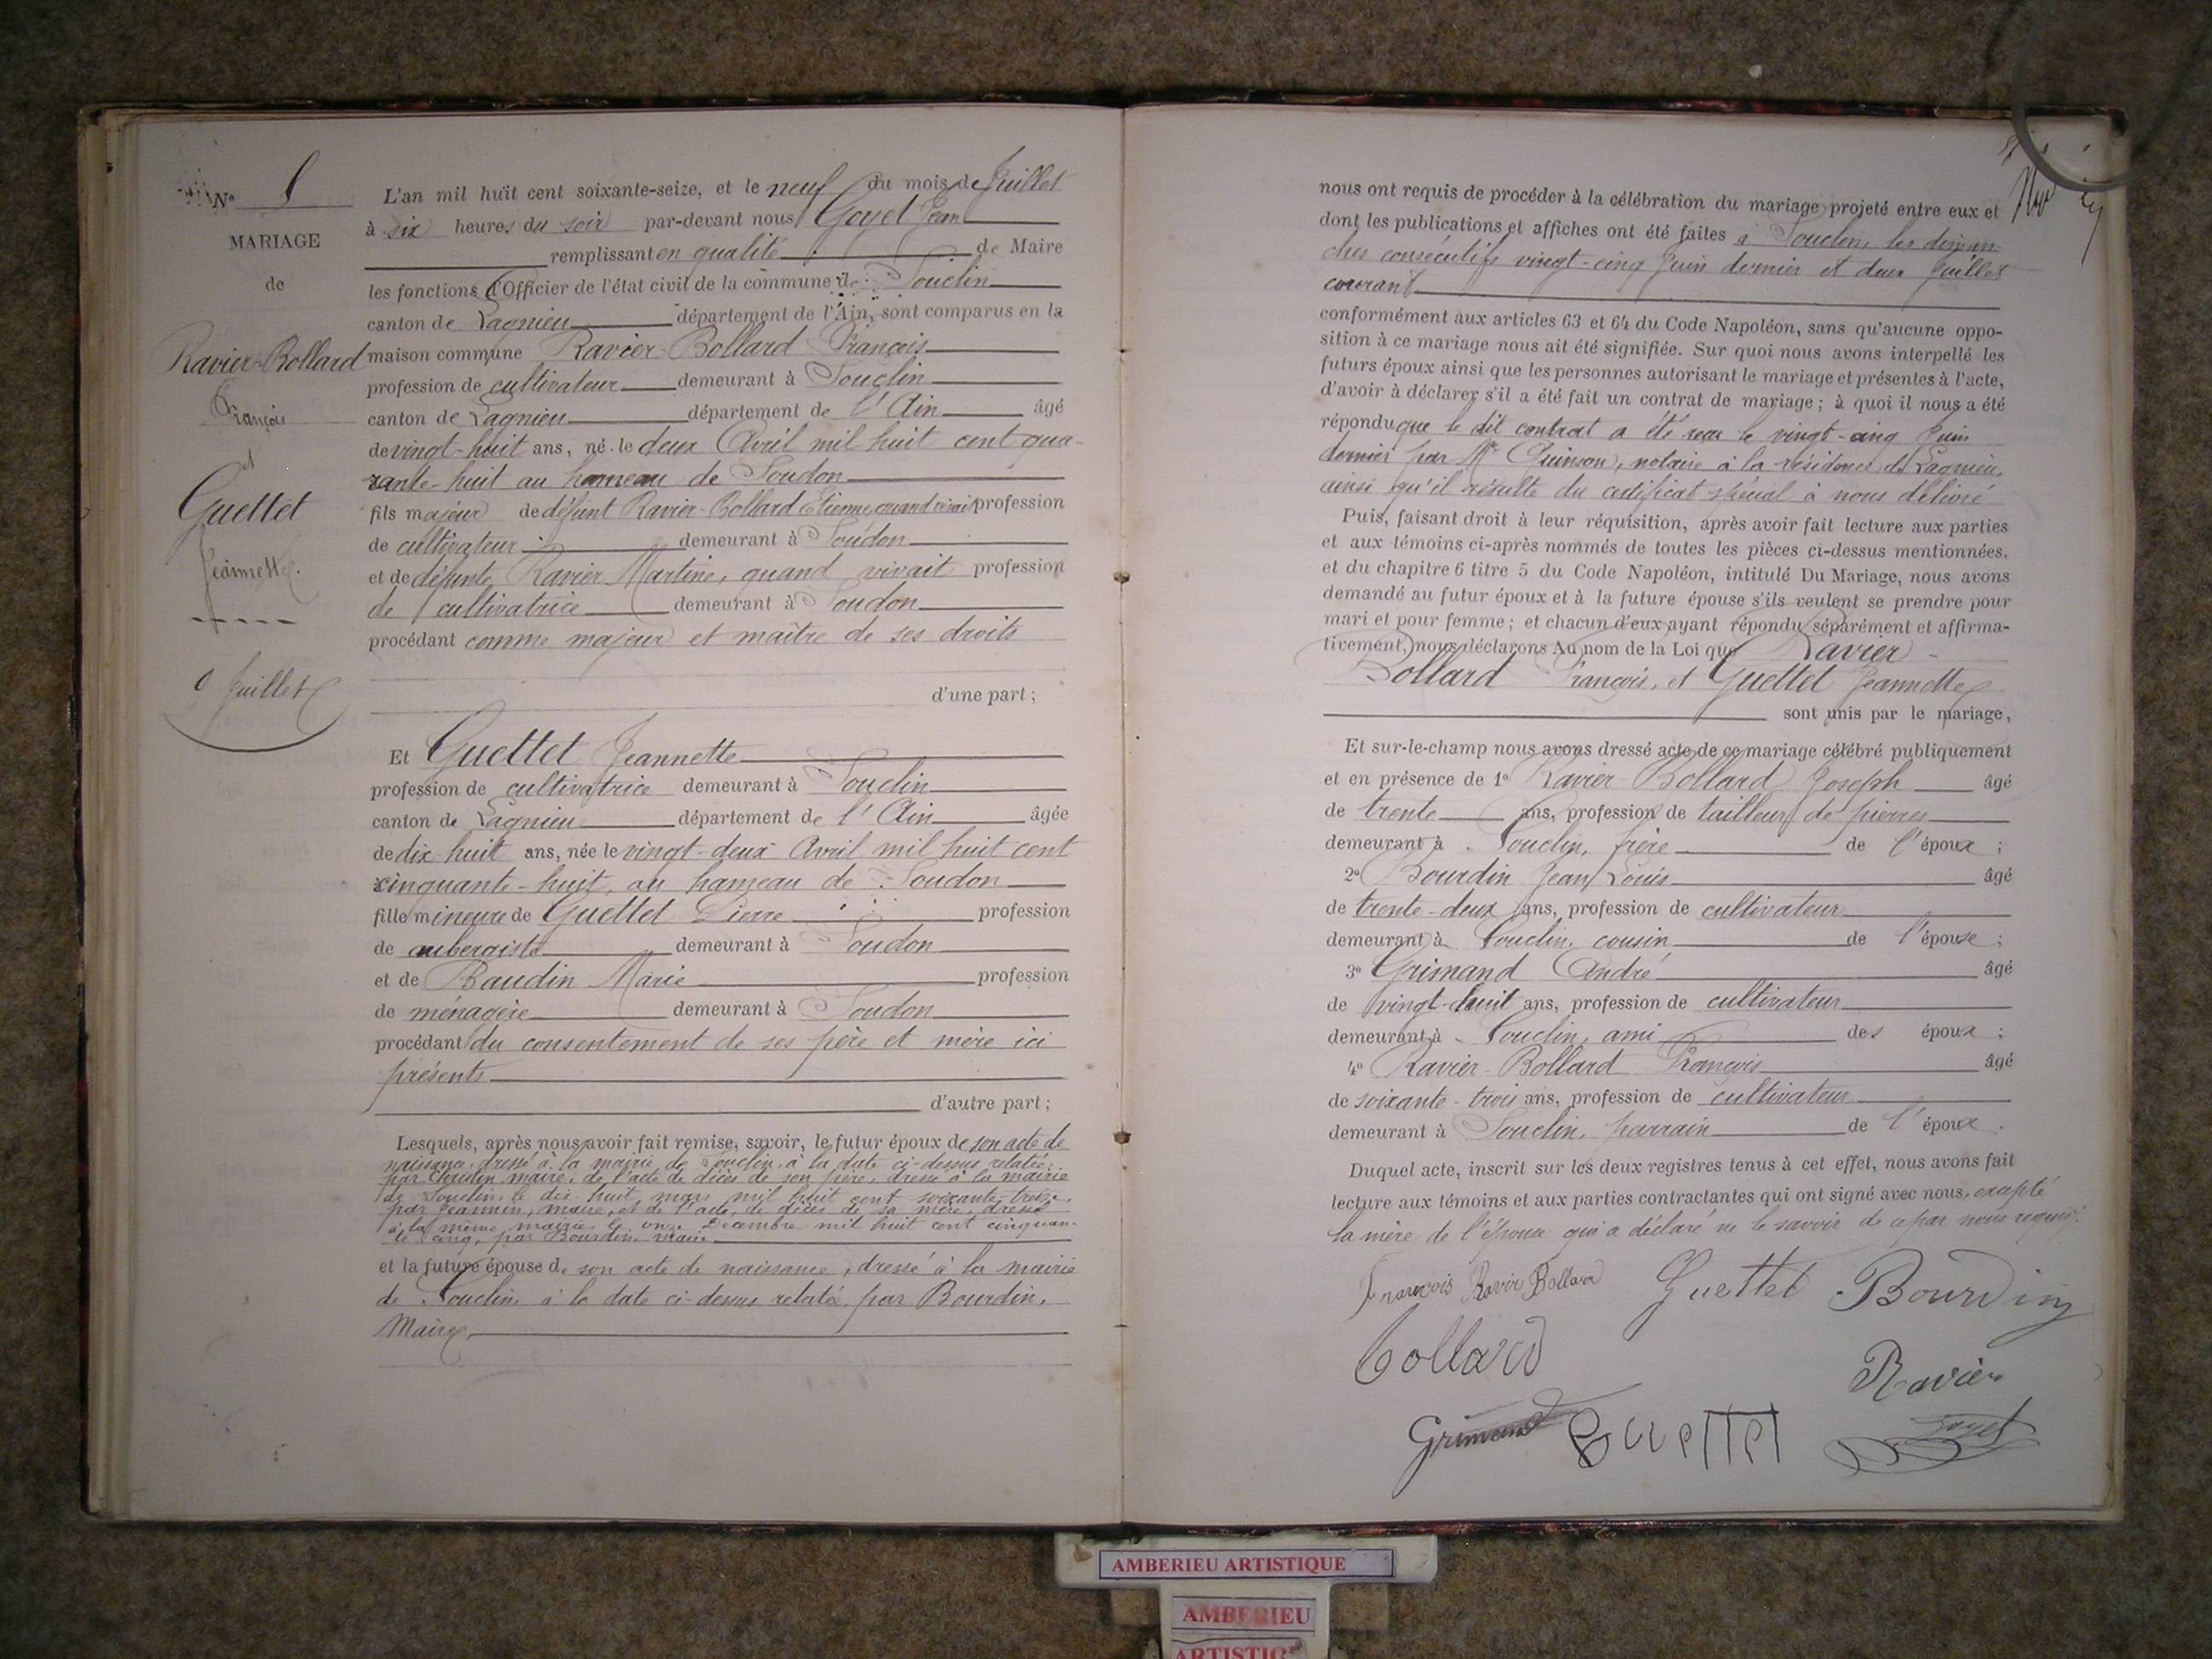 N°
MARIAGE
de
Ravier-Bollard
François
et
Guettet
Jeannette.
9 Juillet
L'an mil huit cent soixante-seize, et le neuf du mois de Juillet
à six heures du soir par-devant nous Goyet Jean
remplissant en qualité de Maire
les fonctions d'Officier de l'état civil de la commune de Souclin
canton de Lagnieu département de l'Ain, sont comparus en la
maison commune Ravier-Bollard François
profession de cultivateur demeurant à Souclin
canton de Lagnieu département de l'Ain âgé
de vingt-huit ans, né le deux Avril mil huit cent qua-
rante-huit au hameau de Soudon
fils majeur de défunt Ravier-Bollard Etienne, quand vivait profession
de cultivateur demeurant à Soudon
et de défunte Ravier Martine, quand vivait profession
de cultivatrice demeurant à Soudon
procédant comme majeur et maître de ses droits
d'une part;
Et Guettet Jeannette
profession de cultivatrice demeurant à Souclin
canton de Lagnieu département de l'Ain âgée
de dix-huit ans, née le vingt-deux Avril mil huit cent
cinquante-huit, au hameau de Soudon
fille mineure de Guettet Pierre profession
de aubergiste demeurant à Soudon
et de Baudin Marie profession
de ménagère demeurant à Soudon
procédant du consentement de ses père et mère ici
présents
d'autre part;
Lesquels, après nous avoir fait remise, savoir, le futur époux de son acte de
naissance, dressé à la mairie de Souclin, à la date ci-dessus relatée,
par Christin maire, de l'acte de décès de son père, dressé à la mairie
de Souclin, le dix-huit mars mil huit cent soixante-treize,
par Jeannin, maire, et de l'acte de décès de sa mère, dressé
à la même mairie, le onze Décembre mil huit cent cinquan-
te cinq, par Bourdin, maire
et la future épouse de son acte de naissance, dressé à la mairie
de Souclin, à la date ci-dessus relatée, par Bourdin,
Maire,
nous ont requis de procéder à la célébration du mariage projeté entre eux et
dont les publications et affiches ont été faites à Souclin, les diman-
ches consécutifs vingt-cinq Juin dernier et deux Juillet
courant
conformément aux articles 63 et 64 du Code Napoléon, sans qu'aucune oppo-
sition à ce mariage nous ait été signifiée. Sur quoi nous avons interpellé les
futurs époux ainsi que les personnes autorisant le mariage et présentes à l'acte,
d'avoir à déclarer s'il a été fait un contrat de mariage; à quoi il nous a été
répondu que le dit contrat a été reçu le vingt-cinq Juin
dernier par Me Quinson, notaire à la résidence de Lagnieu,
ainsi qu'il résulte du certificat spécial à nous délivré
Puis, faisant droit à leur réquisition, après avoir fait lecture aux parties
et aux témoins ci-après nommés de toutes les pièces ci-dessus mentionnées,
et du chapitre 6 titre 5 du Code Napoléon, intitulé Du Mariage, nous avons
demandé au futur époux et à la future épouse s'ils veulent se prendre pour
mari et pour femme; et chacun d'eux ayant répondu séparément et affirma-
tivement, nous déclarons Au nom de la Loi que Ravier-
Bollard François, et Guettet Jeannette
sont unis par le mariage,
Et sur-le-champ nous avons dressé acte de ce mariage célébré publiquement
et en présence de 1° Ravier-Bollard Joseph âgé
de trente ans, profession de tailleur de pierres
demeurant à Souclin, frère de l'époux;
2° Bourdin Jean Louis âgé
de trente-deux ans, profession de cultivateur
demeurant à Souclin, cousin de l'épouse;
3° Grimand André âgé
de vingt-huit ans, profession de cultivateur
demeurant à Souclin, ami des époux;
4° Ravier-Bollard François âgé
de soixante-trois ans, profession de cultivateur
demeurant à Souclin, parrain de l'époux.
Duquel acte, inscrit sur les deux registres tenus à cet effet, nous avons fait
lecture aux témoins et aux parties contractantes qui ont signé avec nous, excepté
la mère de l'épouse qui a déclaré ne le savoir de ce par nous requis.
François Ravir Bollard Guettet Bourdin
Bollard
Ravier
Grimand Guettet Goyet
AMBERIEU ARTISTIQUE
AMBERIEU
ARTISTIQUE